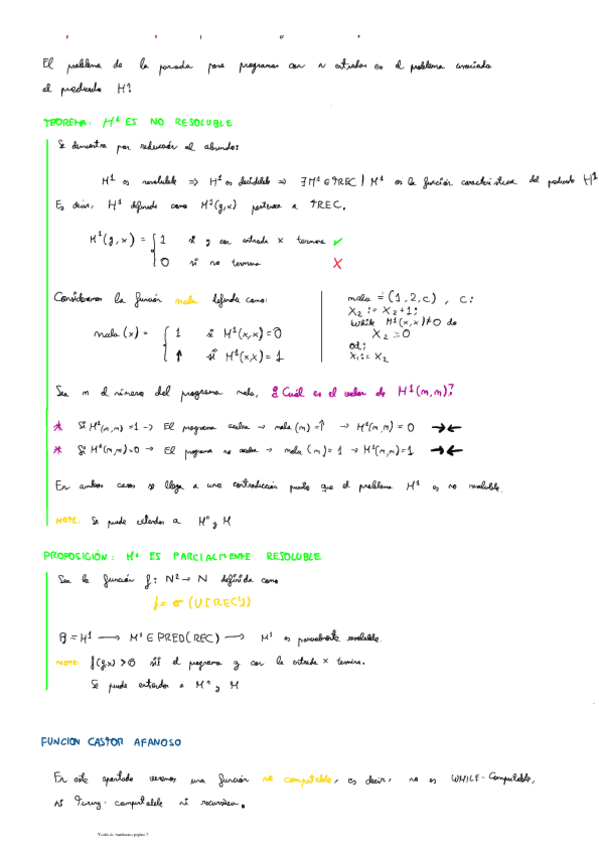 El problema de la parada para programas con n entradas es el problema asociado
al predicado Hⁿ.
TEOREMA: H¹ ES NO RESOLUBLE
Se demuestra por reducción al absurdo:
H¹ es resoluble ⇒ H¹ es decidible ⇒ ∃ M¹ ∈ TREC | M¹ es la función característica del predicado H¹
Es decir, H¹ definido como H¹(y,x) pertenece a TREC.
H¹(y,x) = { 1 si y con entrada x termina ✓
0 si no termina X
Consideramos la función mala definida como:
mala(x) = { 1 si H¹(x,x)=0
↑ si H¹(x,x)=1
mala = (1,2,c), c:
X₂ := X₂+1;
while H¹(x,x)≠0 do
X₂ := 0
od;
X₁ := X₂
Sea m el número del programa mala, ¿Cuál es el valor de H¹(m,m)?
* Si H¹(m,m)=1 → El programa acaba → mala(m)=↑ → H¹(m,m)=0 →←
* Si H¹(m,m)=0 → El programa no acaba → mala(m)=1 → H¹(m,m)=1 →←
En ambos casos se llega a una contradicción puesto que el problema H¹ es no resoluble.
NOTE: Se puede extender a Hⁿ y H
PROPOSICIÓN: H¹ ES PARCIALMENTE RESOLUBLE
Sea la función f: N² → N definida como
f = σ(U[REC¹])
f = H¹ → H¹ ∈ PRED(REC) → H¹ es parcialmente resoluble.
NOTE: f(y,x) > 0 sii el programa y con la entrada x termina.
Se puede extender a Hⁿ y H
FUNCION CASTOR AFANOSO
En este apartado veremos una función no computable, es decir, no es WHILE-Computable,
ni Turing-computable ni recursiva.